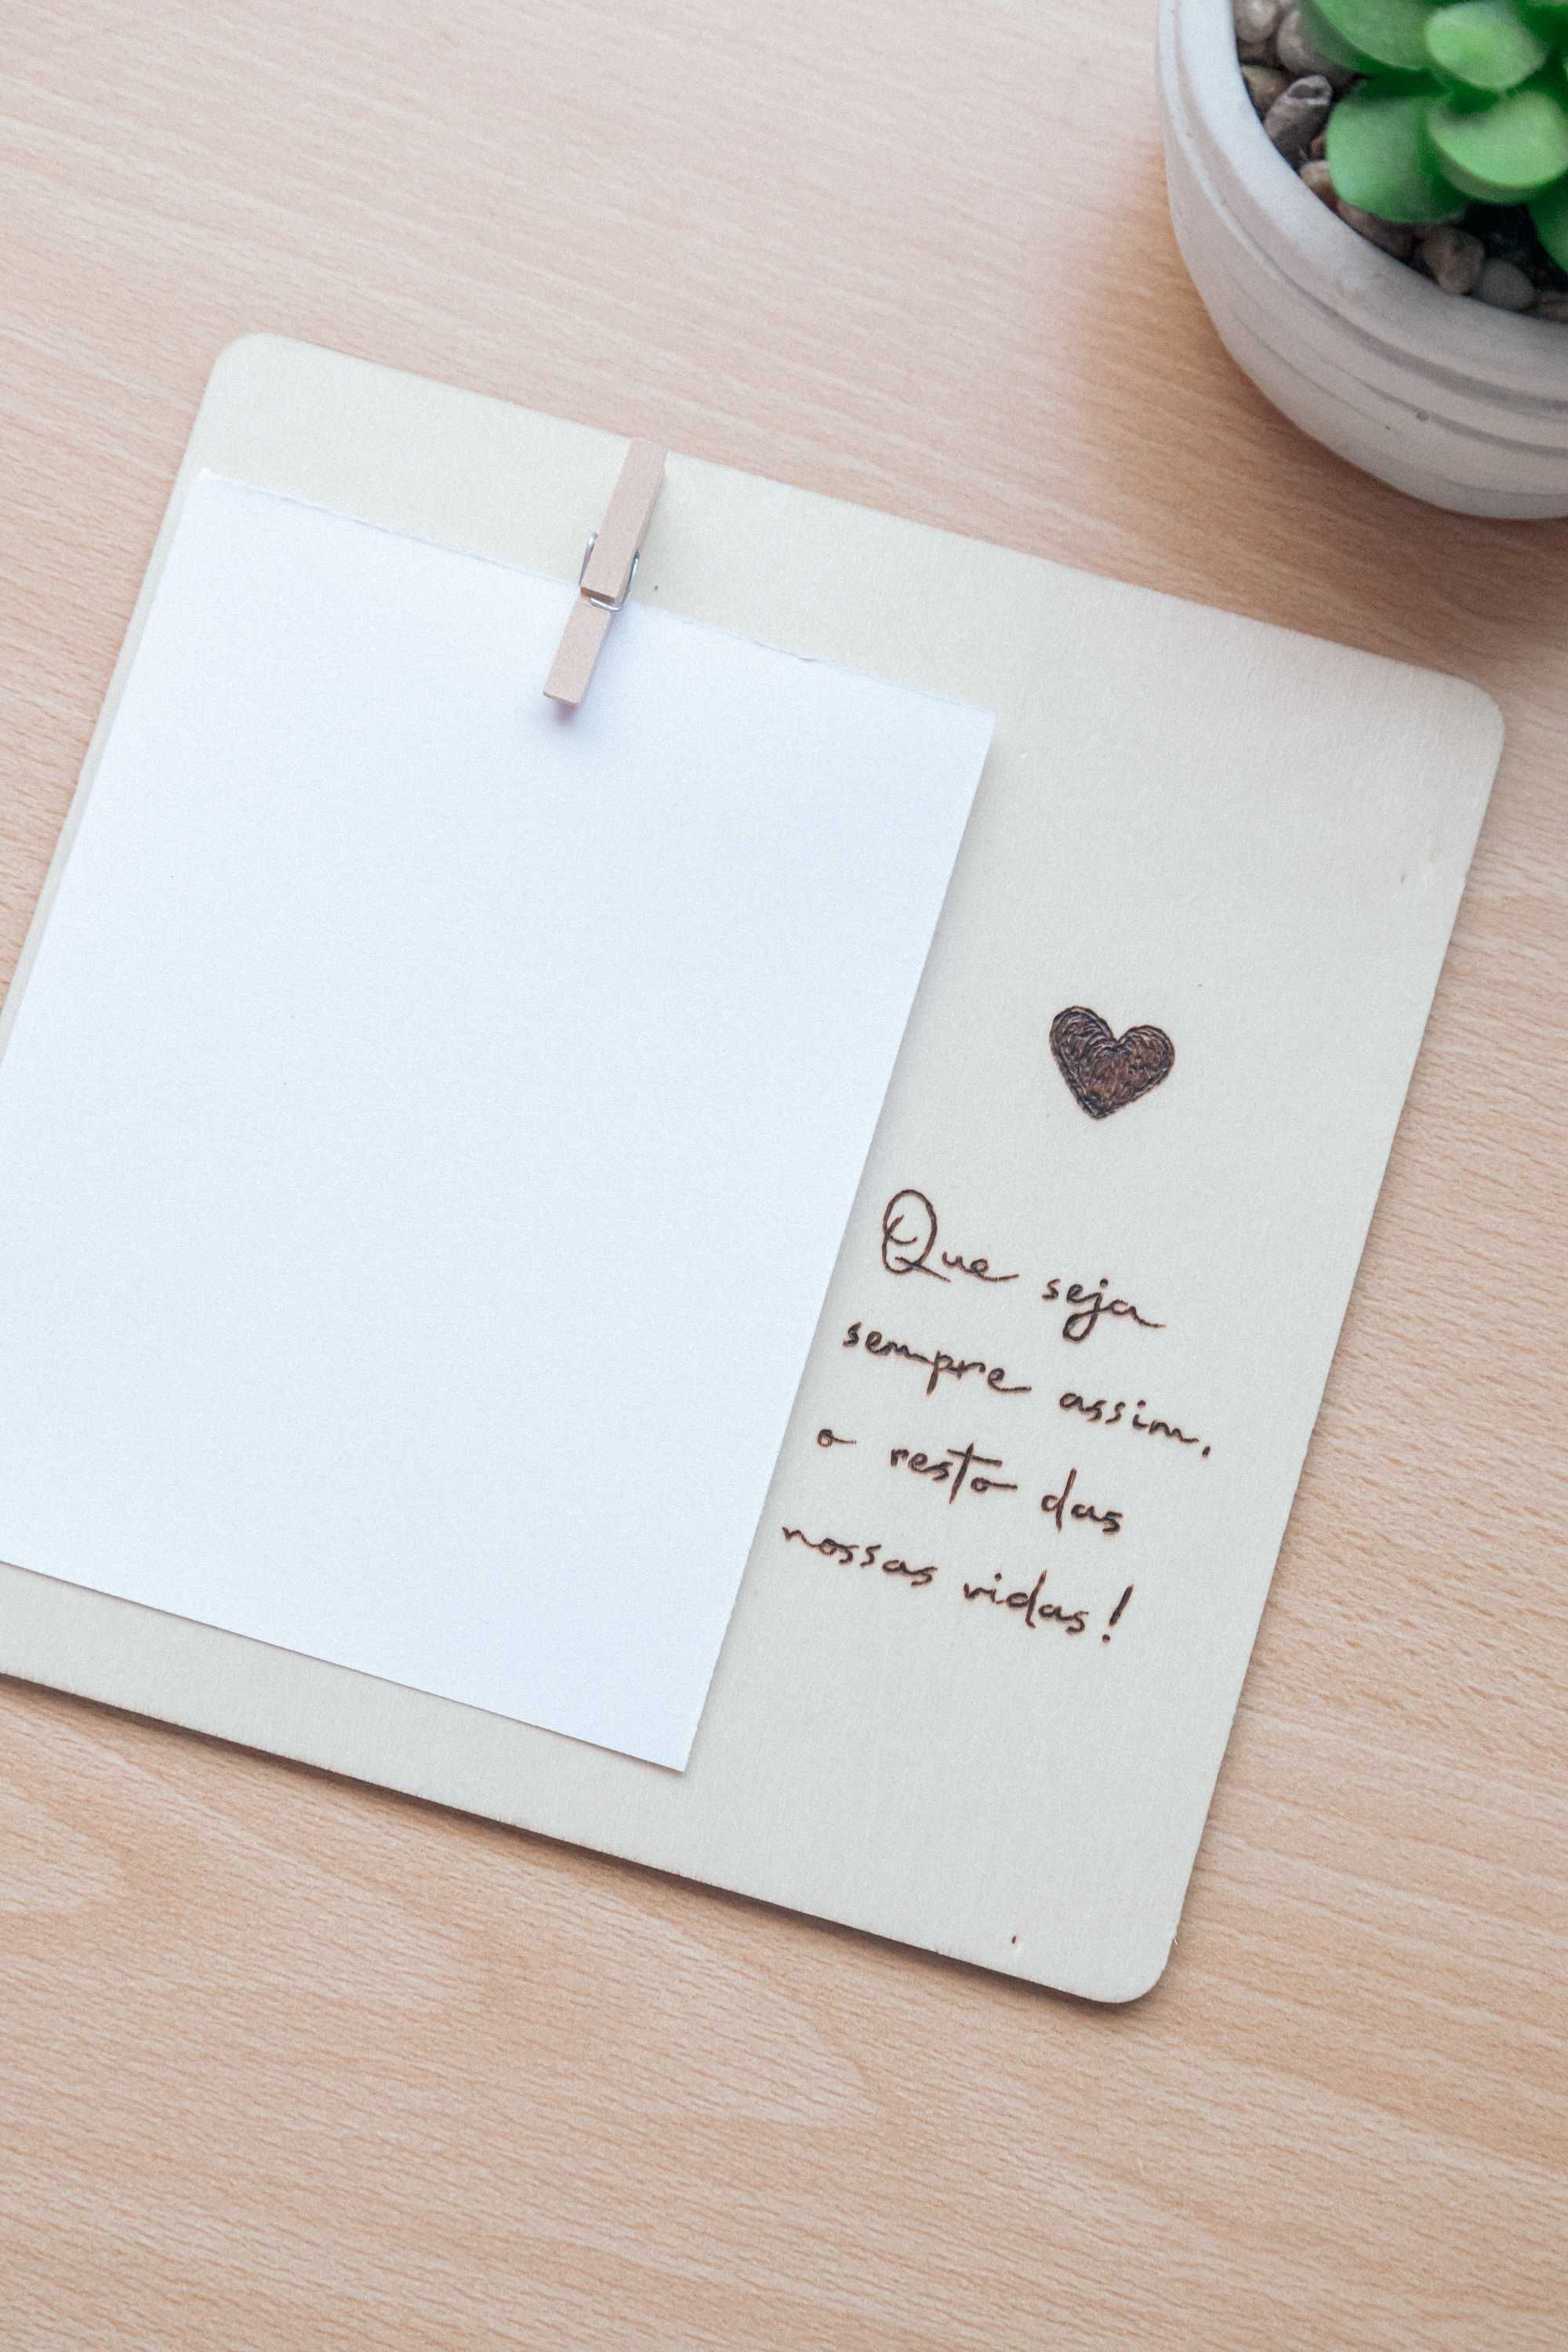 Que seja
sempre assim,
o resto das
nossas vidas!